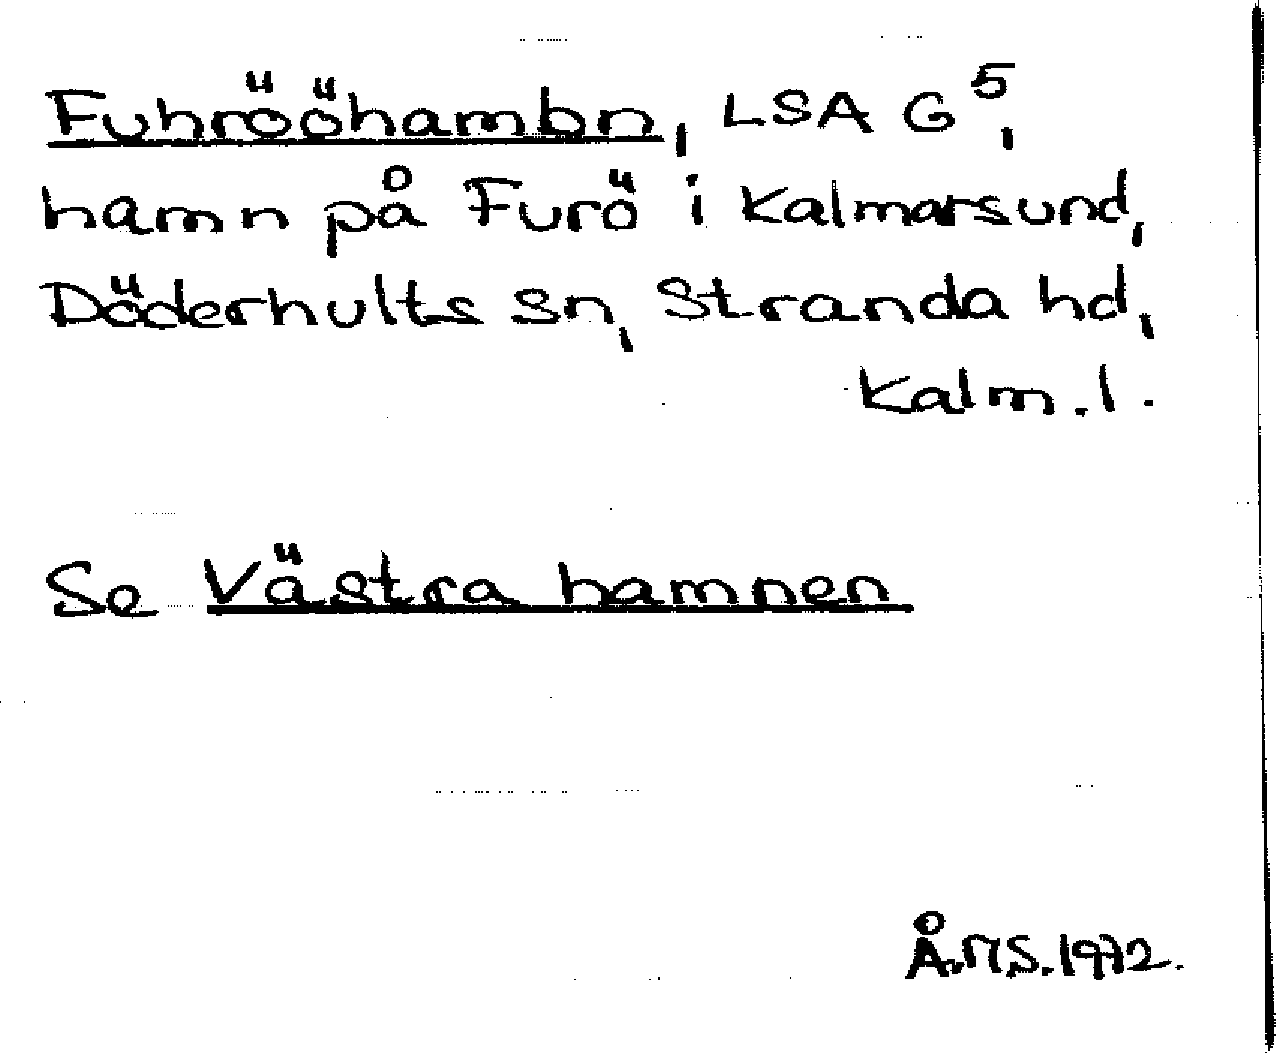 Fuhrööhambn, LSA G⁵,
hamn på Furö i Kalmarsund,
Döderhults sn, Stranda hd,
Kalm. l.
Se Västra hamnen
Å.M.S. 1972.